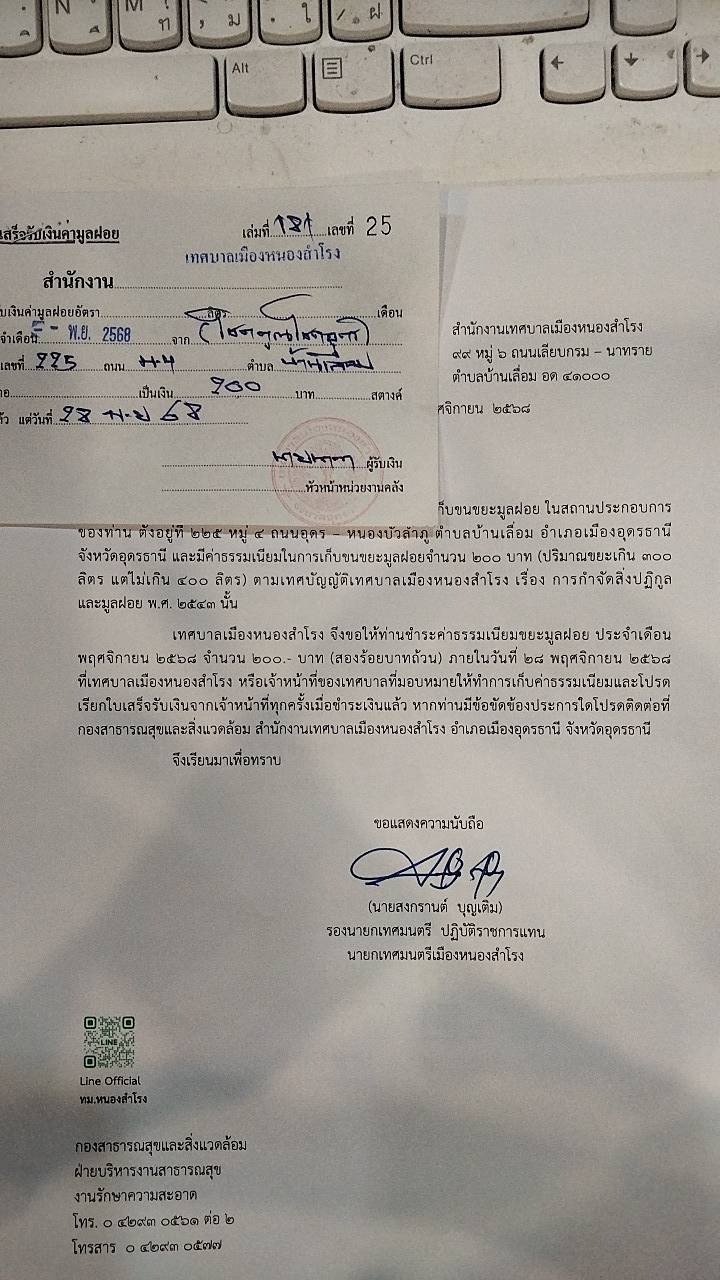 N
M
ท
,
ม
.
ใ
/
ฝ
Alt
Ctrl
เสร็จรับเงินค่ามูลฝอย
เล่มที่ 181 เลขที่ 25
เทศบาลเมืองหนองสำโรง
สำนักงาน
รับเงินค่ามูลฝอยอัตรา ลิตร เดือน
จำเดือน - พ.ย. 2568 จาก
เลขที่ 225 ถนน ม.4 ตำบล บ้านเลื่อม
เป็นเงิน 200 บาท สตางค์
แต่วันที่ 28 พ.ย 68
ผู้รับเงิน
หัวหน้าหน่วยงานคลัง
สำนักงานเทศบาลเมืองหนองสำโรง
๙๙ หมู่ ๖ ถนนเลียบกรม – นาทราย
ตำบลบ้านเลื่อม อด ๔๑๐๐๐
ศจิกายน ๒๕๖๘
ก็บขนขยะมูลฝอย ในสถานประกอบการ
ของท่าน ตั้งอยู่ที่ ๒๒๕ หมู่ ๔ ถนนอุดร – หนองบัวลำภู ตำบลบ้านเลื่อม อำเภอเมืองอุดรธานี
จังหวัดอุดรธานี และมีค่าธรรมเนียมในการเก็บขนขยะมูลฝอยจำนวน ๒๐๐ บาท (ปริมาณขยะเกิน ๓๐๐
ลิตร แต่ไม่เกิน ๔๐๐ ลิตร) ตามเทศบัญญัติเทศบาลเมืองหนองสำโรง เรื่อง การกำจัดสิ่งปฏิกูล
และมูลฝอย พ.ศ. ๒๕๔๓ นั้น
เทศบาลเมืองหนองสำโรง จึงขอให้ท่านชำระค่าธรรมเนียมขยะมูลฝอย ประจำเดือน
พฤศจิกายน ๒๕๖๘ จำนวน ๒๐๐.- บาท (สองร้อยบาทถ้วน) ภายในวันที่ ๒๘ พฤศจิกายน ๒๕๖๘
ที่เทศบาลเมืองหนองสำโรง หรือเจ้าหน้าที่ของเทศบาลที่มอบหมายให้ทำการเก็บค่าธรรมเนียมและโปรด
เรียกใบเสร็จรับเงินจากเจ้าหน้าที่ทุกครั้งเมื่อชำระเงินแล้ว หากท่านมีข้อขัดข้องประการใดโปรดติดต่อที่
กองสาธารณสุขและสิ่งแวดล้อม สำนักงานเทศบาลเมืองหนองสำโรง อำเภอเมืองอุดรธานี จังหวัดอุดรธานี
จึงเรียนมาเพื่อทราบ
ขอแสดงความนับถือ
(นายสงกรานต์ บุญเติม)
รองนายกเทศมนตรี ปฏิบัติราชการแทน
นายกเทศมนตรีเมืองหนองสำโรง
LINE
Line Official
ทม.หนองสำโรง
กองสาธารณสุขและสิ่งแวดล้อม
ฝ่ายบริหารงานสาธารณสุข
งานรักษาความสะอาด
โทร. ๐ ๔๒๙๓ ๐๕๖๑ ต่อ ๒
โทรสาร ๐ ๔๒๙๓ ๐๕๗๗